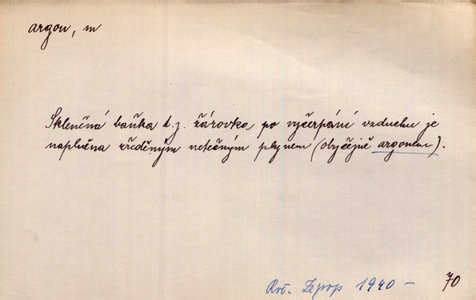 argon, m
Skleněná baňka t.z. žárovka po vyčerpání vzduchu je
naplněna zředěným netečným plynem (obyčejně argonem).
Roč. Zeprop 1940 – 70